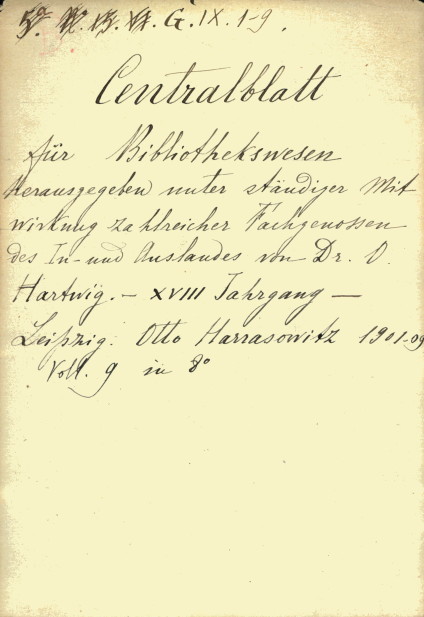 G. IX. 1-9.
Centralblatt
für Bibliothekswesen
herausgegeben unter ständiger Mit
wirkung zahlreicher Fachgenossen
des In- und Auslandes von Dr. O.
Hartwig. — XVIII Jahrgang —
Leipzig: Otto Harrasowitz 1901-09
Voll. 9 in 8°